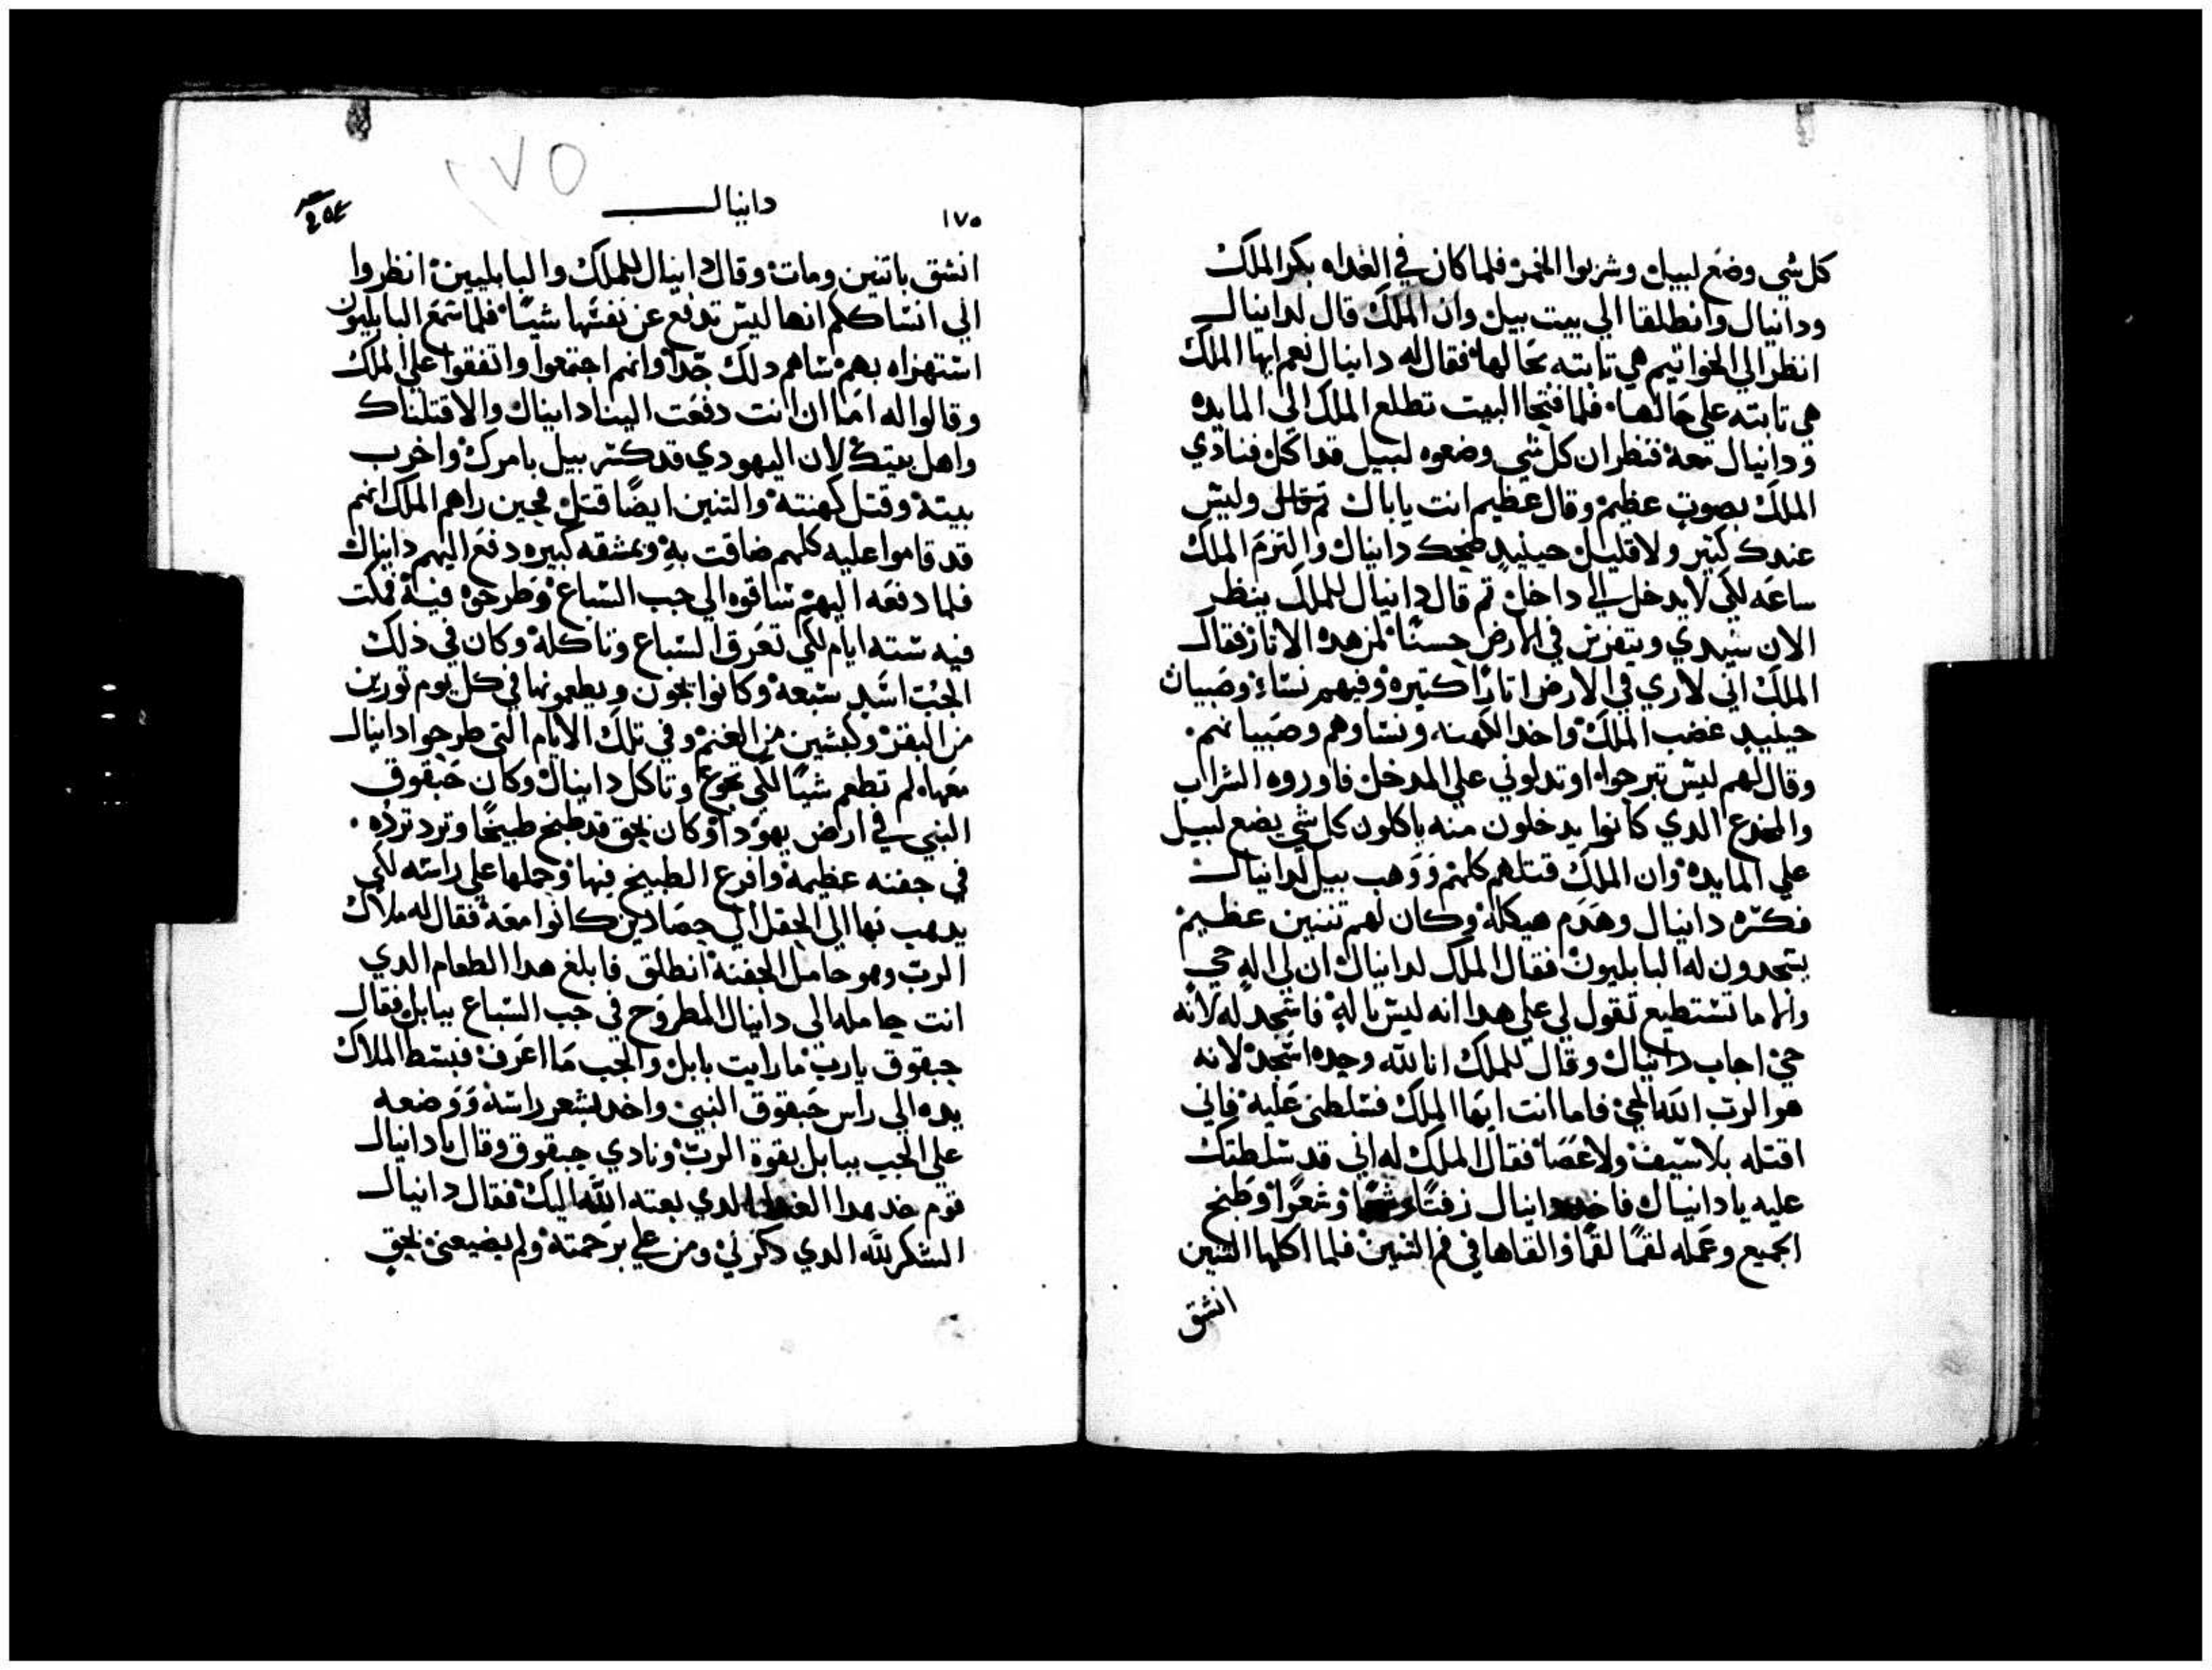 كل شي وضع لبيل وشربوا الخمر فلما كان في الغداه بكر الملك
ودانيال وانطلقا الي بيت بيل وان الملك قال لدانيال
انظر الي الخواتيم هي تابته بحالها فقال له دانيال نعم ايها الملك
هي تابته علي حالها فلما فتحا البيت تطلع الملك الي المايده
ودانيال معه فنظر ان كل شي وضعوه لبيل قد اكل فنادي
الملك بصوت عظيم وقال عظيم انت يا باك وليس
عندك كتير ولا قليل حينيد ضحك دانيال والتزم الملك
ساعه لكي لا يدخل الي داخل تم قال دانيال للملك ينظر
الان سيدي ويتفرس في الارض حسنا لمن هده الاتار فقال
الملك اني لاري في الارض اتارا كتيره وفيهم نساء وصبيان
حينيد غضب الملك واخد الكهنه ونساوهم وصبيانهم
وقال لهم ليس تبرحوا او تدلوني علي المدخل فاوروه السراب
والمخدع الدي كانوا يدخلون منه ياكلون كل شي يضع لبيل
علي المايده وان الملك قتلهم كلهم ووهب بيل لدانيال
فكسره دانيال وهدم هيكله وكان لهم تنين عظيم
يسجدون له البابليون فقال الملك لدانيال ان لي اله حي
وانها ما تستطيع تقول لي علي هدا انه ليس باله فاسجد له لانه
حي اجاب دانيال وقال للملك انا لله وحده اسجد لانه
هو الرب الله الحي فاما انت ايها الملك فسلطني عليه فاني
اقتله بلا سيف ولا عصا فقال الملك له اني قد سلطتك
عليه يا دانيال فاخد دانيال زفتا وشحما وشعرا وطبخ
الجميع وعمله لقما لقما والقاها في فم التنين فلما اكلها التنين
انشق
١٧٥
دانيال
١٧٥
انشق باتنين ومات وقال دانيال للملك والبابليين انظروا
الي انساكلم انها ليس تدفع عن نفسها شيا فلما سمع البابليون
استهزاه بهم ساهم دلك جدا وانهم اجتمعوا واتفقوا علي الملك
وقالوا له اما ان انت دفعت الينا دانيال والا قتلناك
واهل بيتك لان اليهودي قد كسر بيل بامرك واخرب
بيته وقتل كهنته والتنين ايضا قتل فحين راهم الملك انهم
قد قاموا عليه كلهم ضاقت به وبمشقه كبيره دفع اليهم دانيال
فلما دفعه اليهم ساقوه الي جب السباع وطرحوه فيه فمكت
فيه سته ايام لكي تعرق السباع وتاكله وكان في ذلك
الجب اسد سبعه وكانوا يجون ويطعمونها في كل يوم تورين
من البقر وكبشين من الغنم وفي تلك الايام التي طرحوا دانيال
معهاه لم تطعم شيا لكي تجوع وتاكل دانيال وكان حبقوق
النبي في ارض يهودا وكان بحق قد طبخ طبيخا وترد ترده
في جفنه عظيمه وافرغ الطبيخ فيها وحملها علي راسه لكي
يدهب بها الي الحقل الي حصادين كانوا معه فقال له ملاك
الرب وهو حامل الجفنه انطلق فابلغ هدا الطعام الدي
انت حامله الي دانيال المطروح في جب السباع ببابل فقال
حبقوق يا رب ما رايت بابل والجب ما اعرف فبسط الملاك
يده الي راس حبقوق النبي واخد بشعر راسه ووضعه
علي الجب ببابل بقوة الرب ونادي حبقوق وقال يا دانيال
قوم خد هدا الغدا الدي بعته الله اليك فقال دانيال
الشكر لله الدي دكرني ومن علي برحمته ولم يضيعني بحق